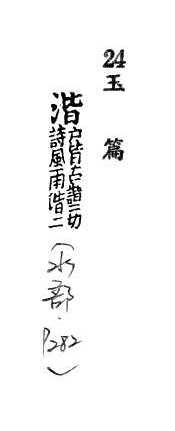 24
玉篇
湝 户皆古諧二切
詩風雨湝二
(水部·P282)